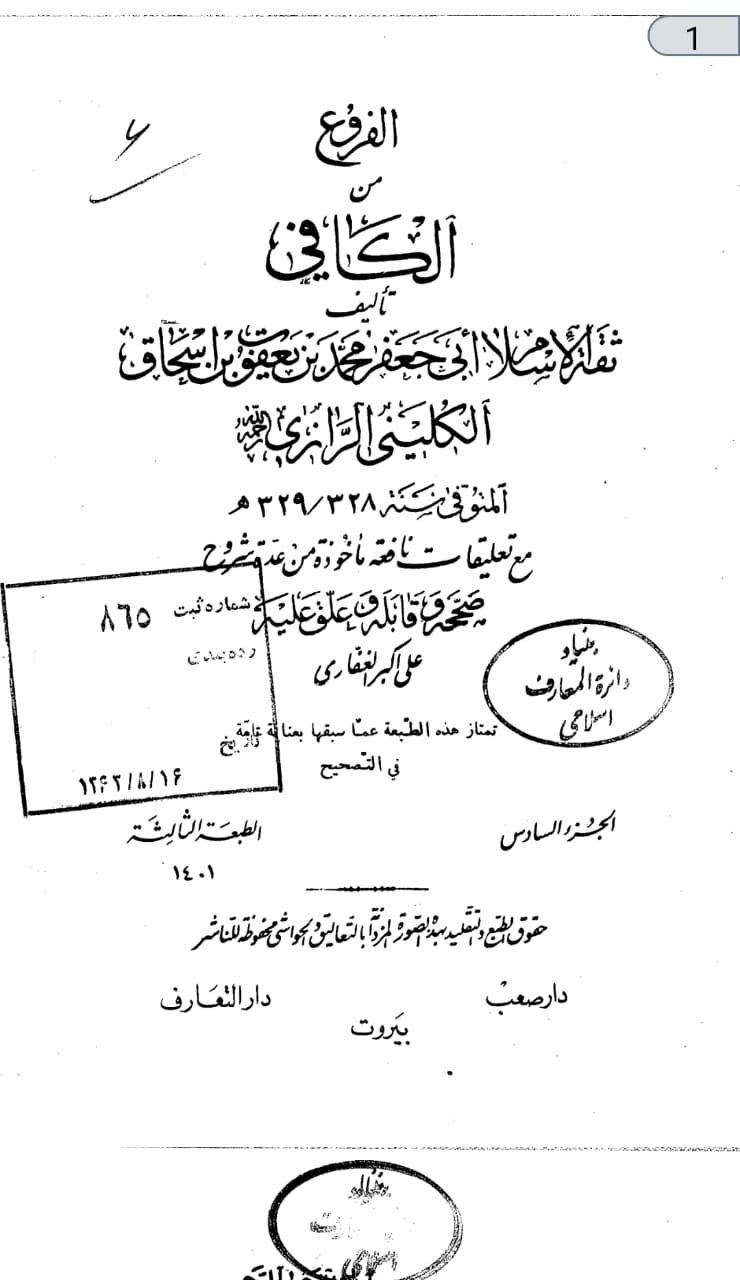 1
٦
الفروع
من
الكافي
تأليف
ثقة الإسلام أبي جعفر محمد بن يعقوب بن اسحاق
الكليني الرازي رحمه الله
المتوفى سنة ٣٢٨/٣٢٩ هـ
مع تعليقات نافعه مأخوذة من عدة شروح
صححه وقابله وعلق عليه
على اكبر الغفاري
شماره ثبت ٨٦٥
رده بندی
تاریخ
۱۳۶۲/۸/۱۶
بنیاد
دائرة المعارف
اسلامی
تمتاز هذه الطبعة عمّا سبقها بعناية تامّة
في التصحيح
الجزء السادس
الطبعة الثالثة
١٤٠١
حقوق الطبع والتقليد بهذه الصورة المزدانة بالتعاليق والحواشي محفوظة للناشر
دار صعب
دار التعارف
بيروت
بنیاد
اسلامی